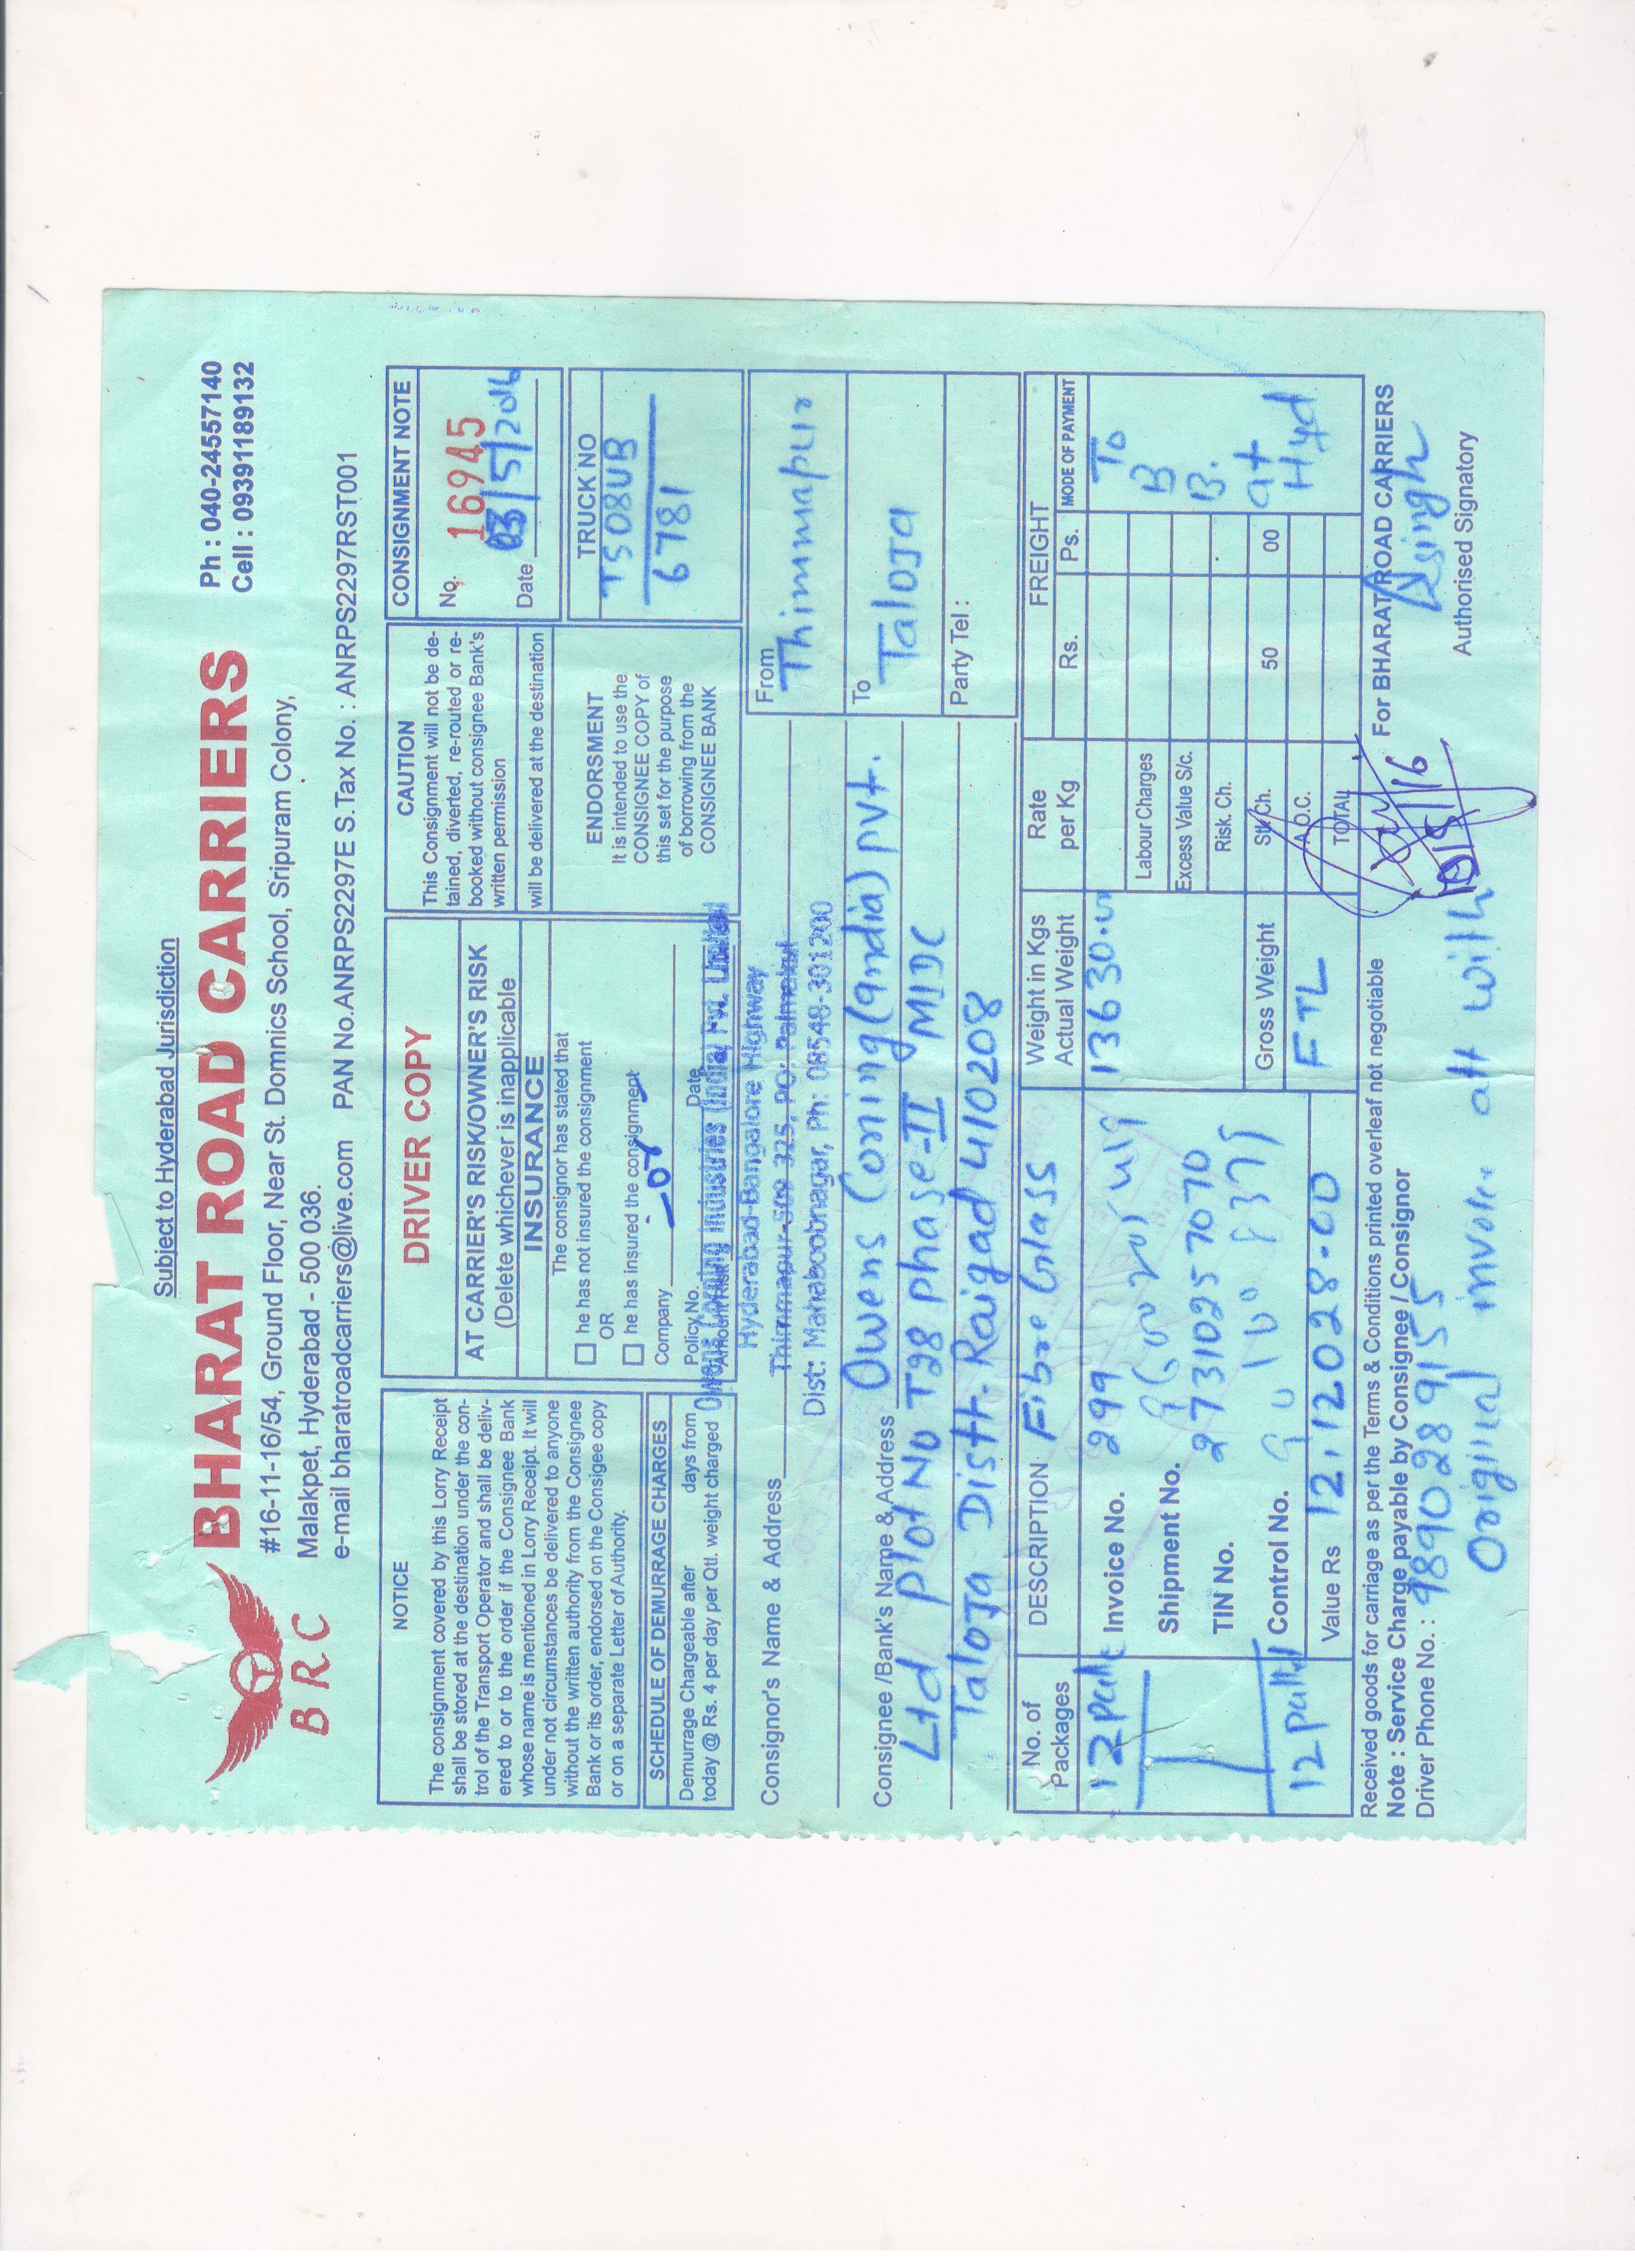 Subject to Hyderabad Jurisdiction
BHARAT ROAD CARRIERS
Ph : 040-24557140
Cell : 09391189132
B R C
#16-11-16/54, Ground Floor, Near St. Domnics School, Sripuram Colony,
Malakpet, Hyderabad - 500 036.
e-mail bharatroadcarriers@live.com PAN No.ANRPS2297E S.Tax No. : ANRPS2297RST001
NOTICE
The consignment covered by this Lorry Receipt
shall be stored at the destination under the con-
trol of the Transport Operator and shall be deliv-
ered to or to the order if the Consignee Bank
whose name is mentioned in Lorry Receipt. It will
under not circumstances be delivered to anyone
without the written authority from the Consignee
Bank or its order, endorsed on the Consigee copy
or on a separate Letter of Authority.
SCHEDULE OF DEMURRAGE CHARGES
Demurrage Chargeable after days from
today @ Rs. 4 per day per Qtl. weight charged
DRIVER COPY
AT CARRIER'S RISK/OWNER'S RISK
(Delete whichever is inapplicable
INSURANCE
The consignor has stated that
he has not insured the consignment
OR
he has insured the consignment
Company
Policy No. Date
Amount Risk
CAUTION
This Consignment will not be de-
tained, diverted, re-routed or re-
booked without consignee Bank's
written permission
will be delivered at the destination
ENDORSMENT
It is intended to use the
CONSIGNEE COPY of
this set for the purpose
of borrowing from the
CONSIGNEE BANK
CONSIGNMENT NOTE
No. 16945
Date 03/5/2016
TRUCK NO
TS08UB
6781
Owens Corning Industries (India) Pvt. Limited
Hyderabad-Bangalore Highway
Consignor's Name & Address Thimmapur-509 325, PO: Palmakul
Dist: Mahaboobnagar, Ph: 08548-301200
From
Thimmapur
To
Taloja
Party Tel :
Consignee /Bank's Name & Address Owens Corning (India) pvt.
Ltd Plot No T28 phase-II MIDC
Taloja Distt. Raigad 410208
No. of
Packages
12
12
DESCRIPTION Fibre Glass
Invoice No. 299
Shipment No.
TIN No. 27310257070
Control No.
Value Rs 12,12028.00
Weight in Kgs
Actual Weight
13630.00
Gross Weight
FTL
Rate
per Kg
Labour Charges
Excess Value S/c.
Risk. Ch.
Stk Ch. 50 00
A.O.C.
TOTAL
FREIGHT
Rs. Ps. MODE OF PAYMENT
To
B
B.
at
Hyd
Received goods for carriage as per the Terms & Conditions printed overleaf not negotiable
Note : Service Charge payable by Consignee / Consignor
Driver Phone No. : 9890289155
10/5/16
For BHARAT ROAD CARRIERS
Asingh
Authorised Signatory
Original invoice att with